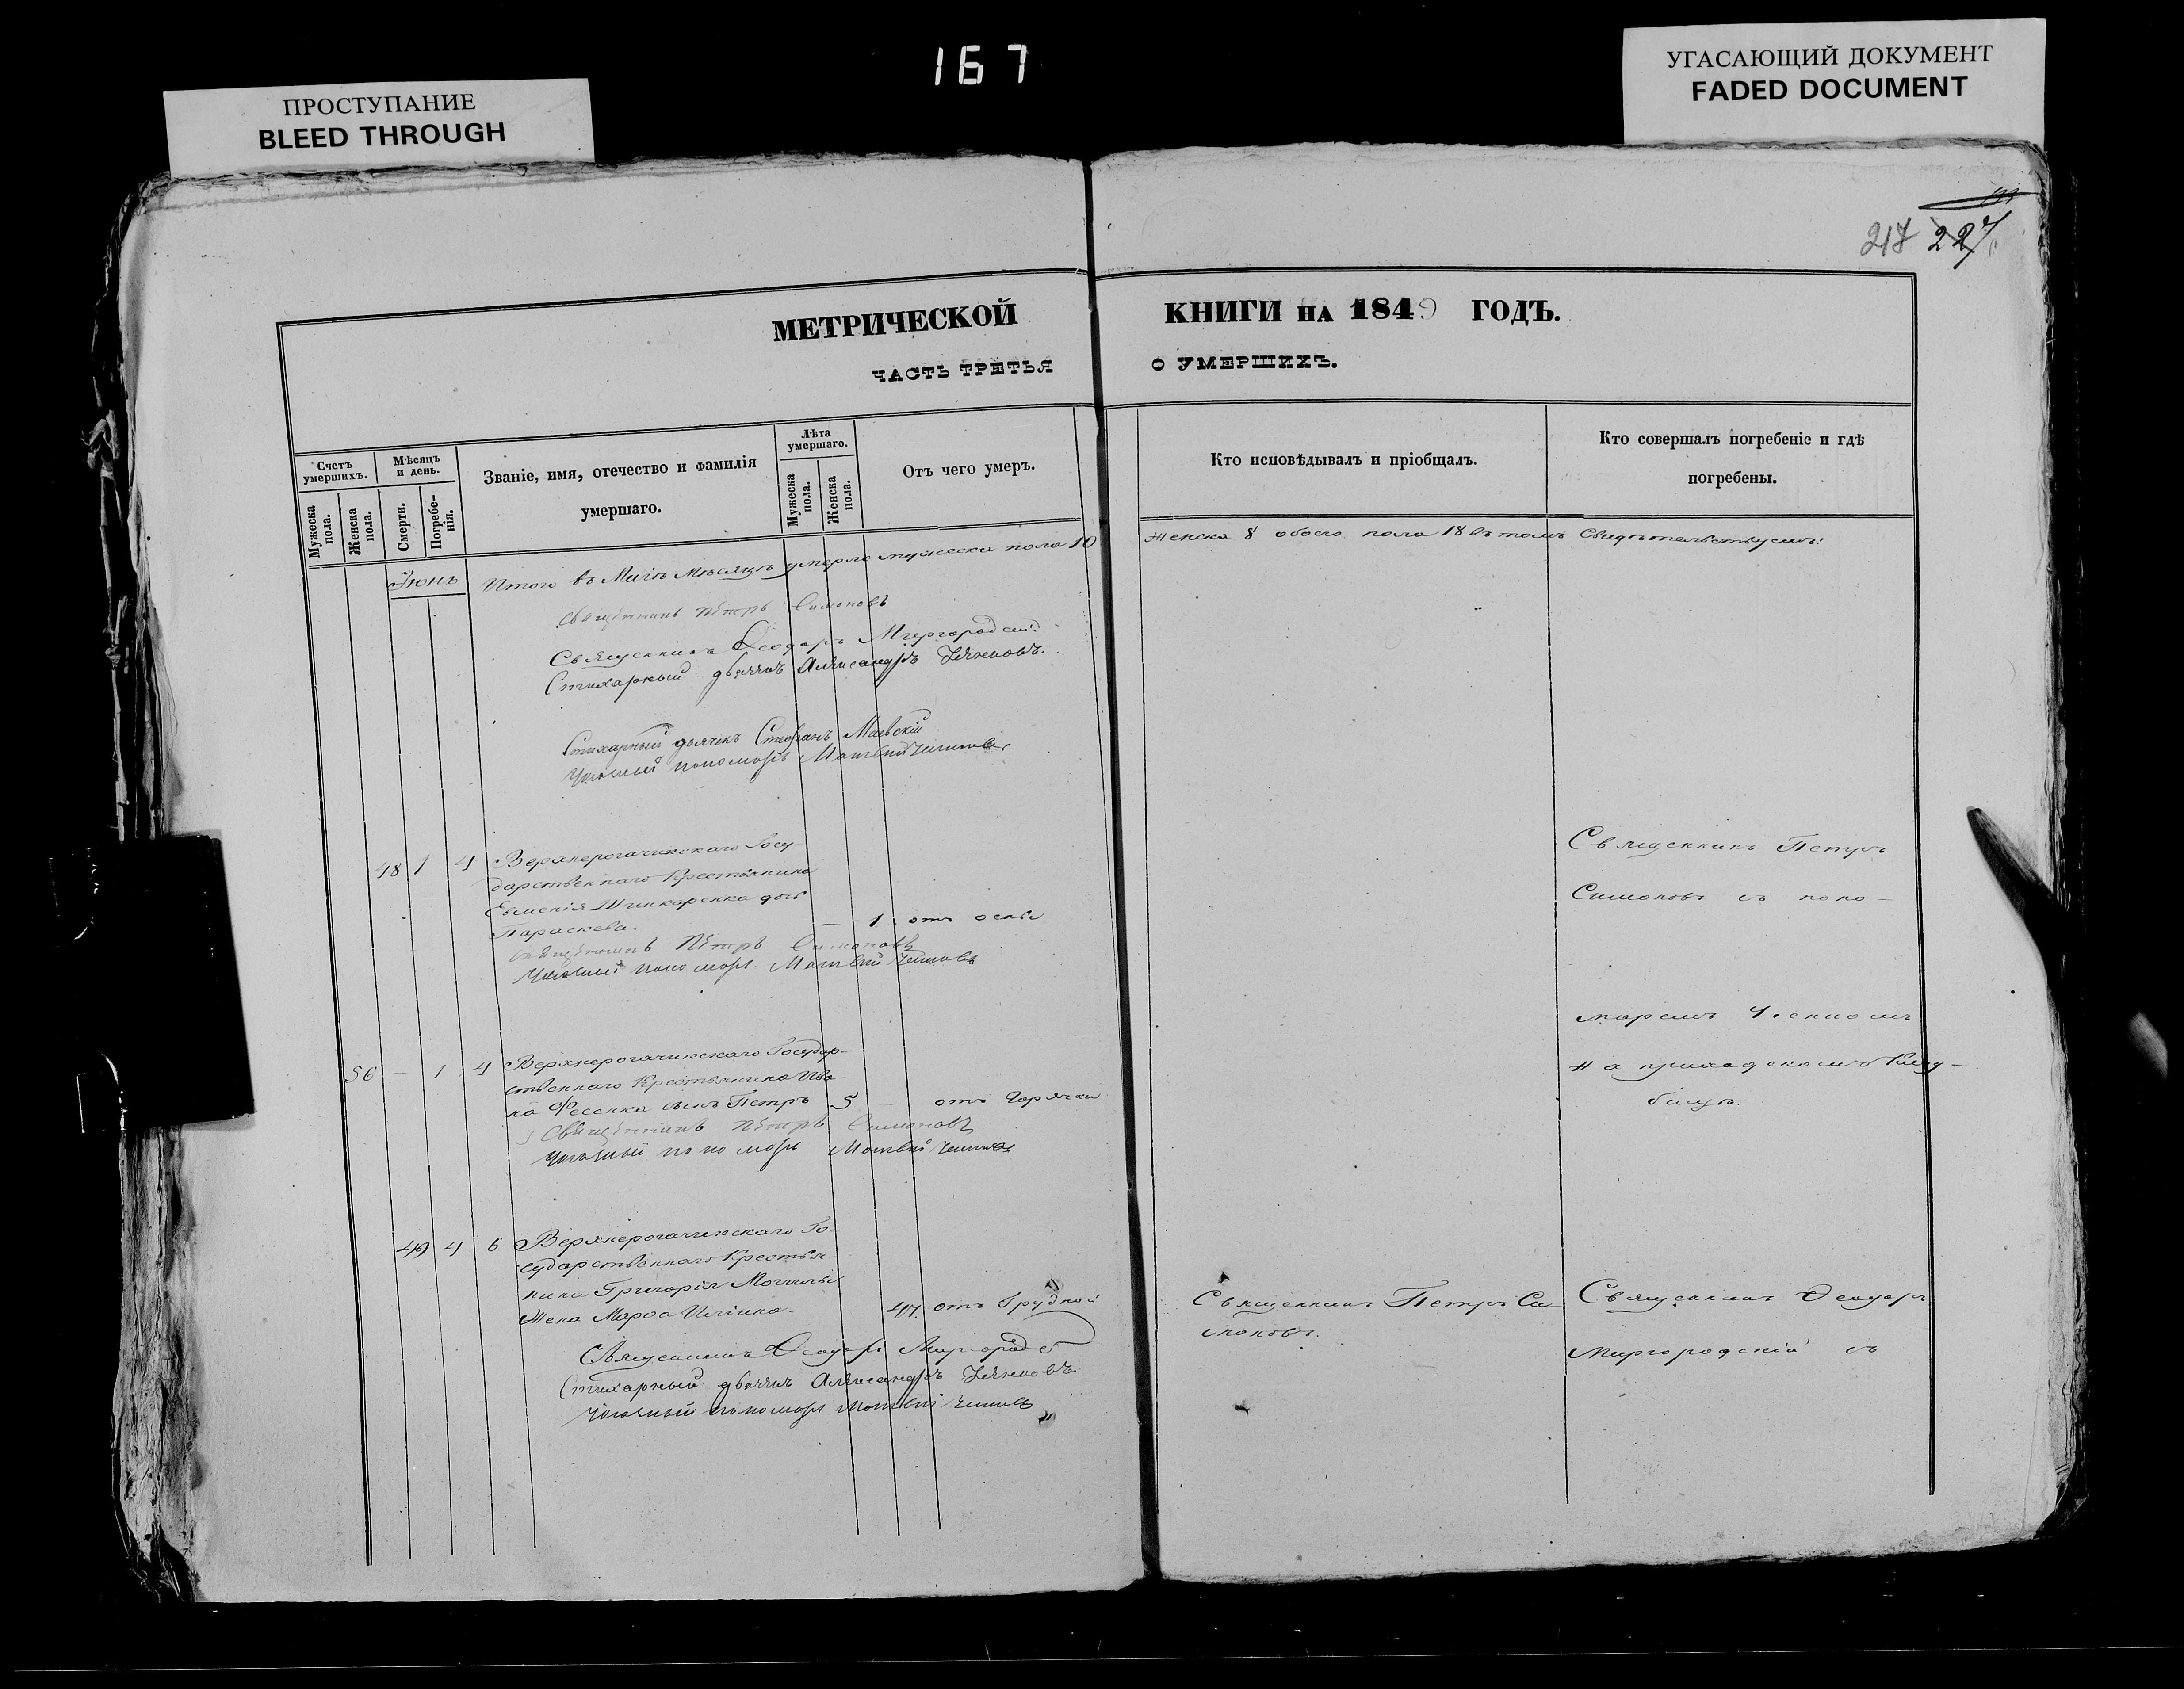 167
ПРОСТУПАНИЕ
BLEED THROUGH
УГАСАЮЩИЙ ДОКУМЕНТ
FADED DOCUMENT
217 227
МЕТРИЧЕСКОЙ КНИГИ НА 1849 ГОДЪ.
ЧАСТЬ ТРЕТЬЯ О УМЕРШИХЪ.
Счетъ умершихъ.
Мужеска пола.
Женска пола.
Мѣсяцъ и день.
Смерти.
Погребе-
нія.
Званіе, имя, отечество и фамилія
умершаго.
Лѣта
умершаго.
Мужеска пола.
Женска пола.
Отъ чего умеръ.
Кто исповѣдывалъ и пріобщалъ.
Кто совершалъ погребеніе и гдѣ
погребены.
Іюнь
Итого въ Маіѣ Мѣсяцѣ умерло мужеска пола 10 женска 8 обоего пола 18 въ томъ Свидѣтельствуемъ:
Священникъ Петръ Симоновъ
Священникъ Ѳеодоръ Миргородскій
Стихарный дьячекъ Александръ
Стихарный дьячекъ Стефанъ Маевскій
пономарь Матвей
48 1 4 Верхнерогачикскаго Госу-
дарственнаго Крестьянина
Евменія Шинкаренка дочь
Параскева. — 1 отъ оспы
Священникъ Петръ Симоновъ
пономарь Матвей
Священникъ Петръ
Симоновъ съ поно-
марем
на приходскомъ Клад-
бищѣ.
56 — 1 4 Верхнерогачикскаго Государ-
ственнаго Крестьянина Ива-
на Фесенка сынъ Петръ 5 — отъ Горячки
Священникъ Петръ Симоновъ
пономарь Матвей
49 4 6 Верхнерогачикскаго Го-
сударственнаго Крестья-
нина Григорія Могилы
Жена Марѳа 47 отъ Грудной
Священникъ Ѳеодоръ
Стихарный дьячекъ Александръ
пономарь Матвей
Священникъ Петръ Си-
моновъ.
Священникъ Ѳеодоръ
Миргородскій съ